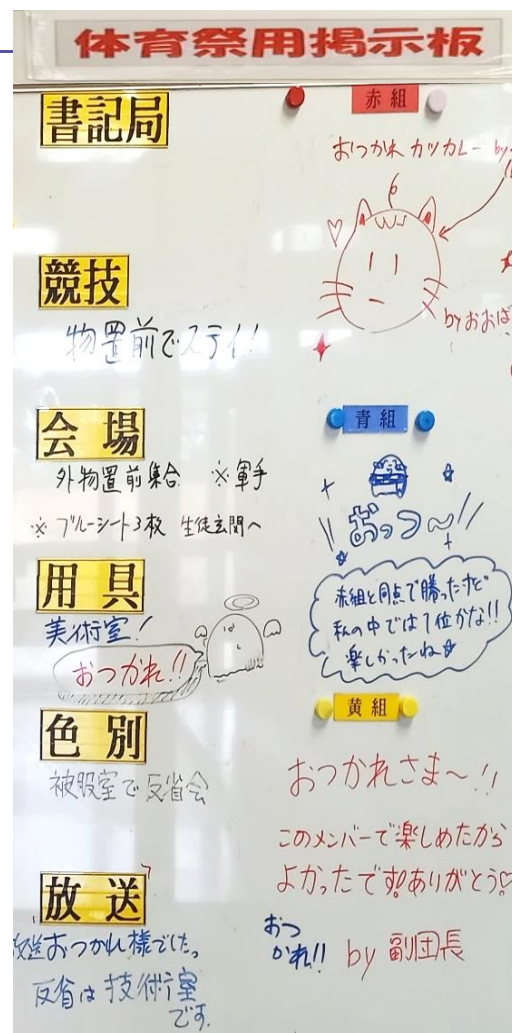 体育祭用掲示板
書記局
競技
物置前でステイ!
会場
外物置前集合 ※軍手
※ブルーシート3枚 生徒玄関へ
用具
美術室!
おつかれ!!
色別
被服室で反省会
放送
放送おつかれ様でした。
反省は技術室
です。
赤組
おつかれカツカレー by
byおおば
青組
おっつ〜!!
赤組と同点で勝ったけど
私の中では1位かな!!
楽しかったね☆
黄組
おつかれさま〜!!
このメンバーで楽しめたから
よかったです!ありがとう♡
おつ
かれ!!
by 副団長